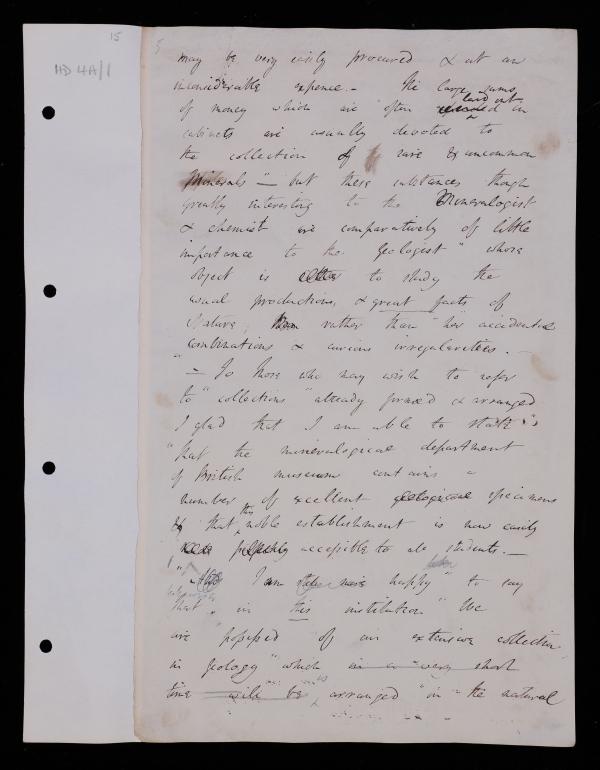 15
5
HD 4A/1
may be very easily procured & at an
inconsiderable expence. – The large sums
of money which are often laid out in
cabinets are usually devoted to
the collection of rare & uncommon
Minerals" – but these substances though
greatly interesting to the Mineralogist
& chemist are comparatively of little
importance to the Geologist" whose
object is to study the
usual productions, & great facts of
Nature, rather than "her accidental
combinations & curious irregularities. –
– To those who may wish to refer
to "collections" already formed & arranged
I glad that I am able to state
"that the mineralogical department
of British museum contains a
number of excellent geological specimens
& that this noble establishment is now easily
accessible to all students. –
I am happy" to say
that "in this institution" We
are "possessed "of an extensive collection
in geology" which in a "very short
time will be arranged "in "the natural